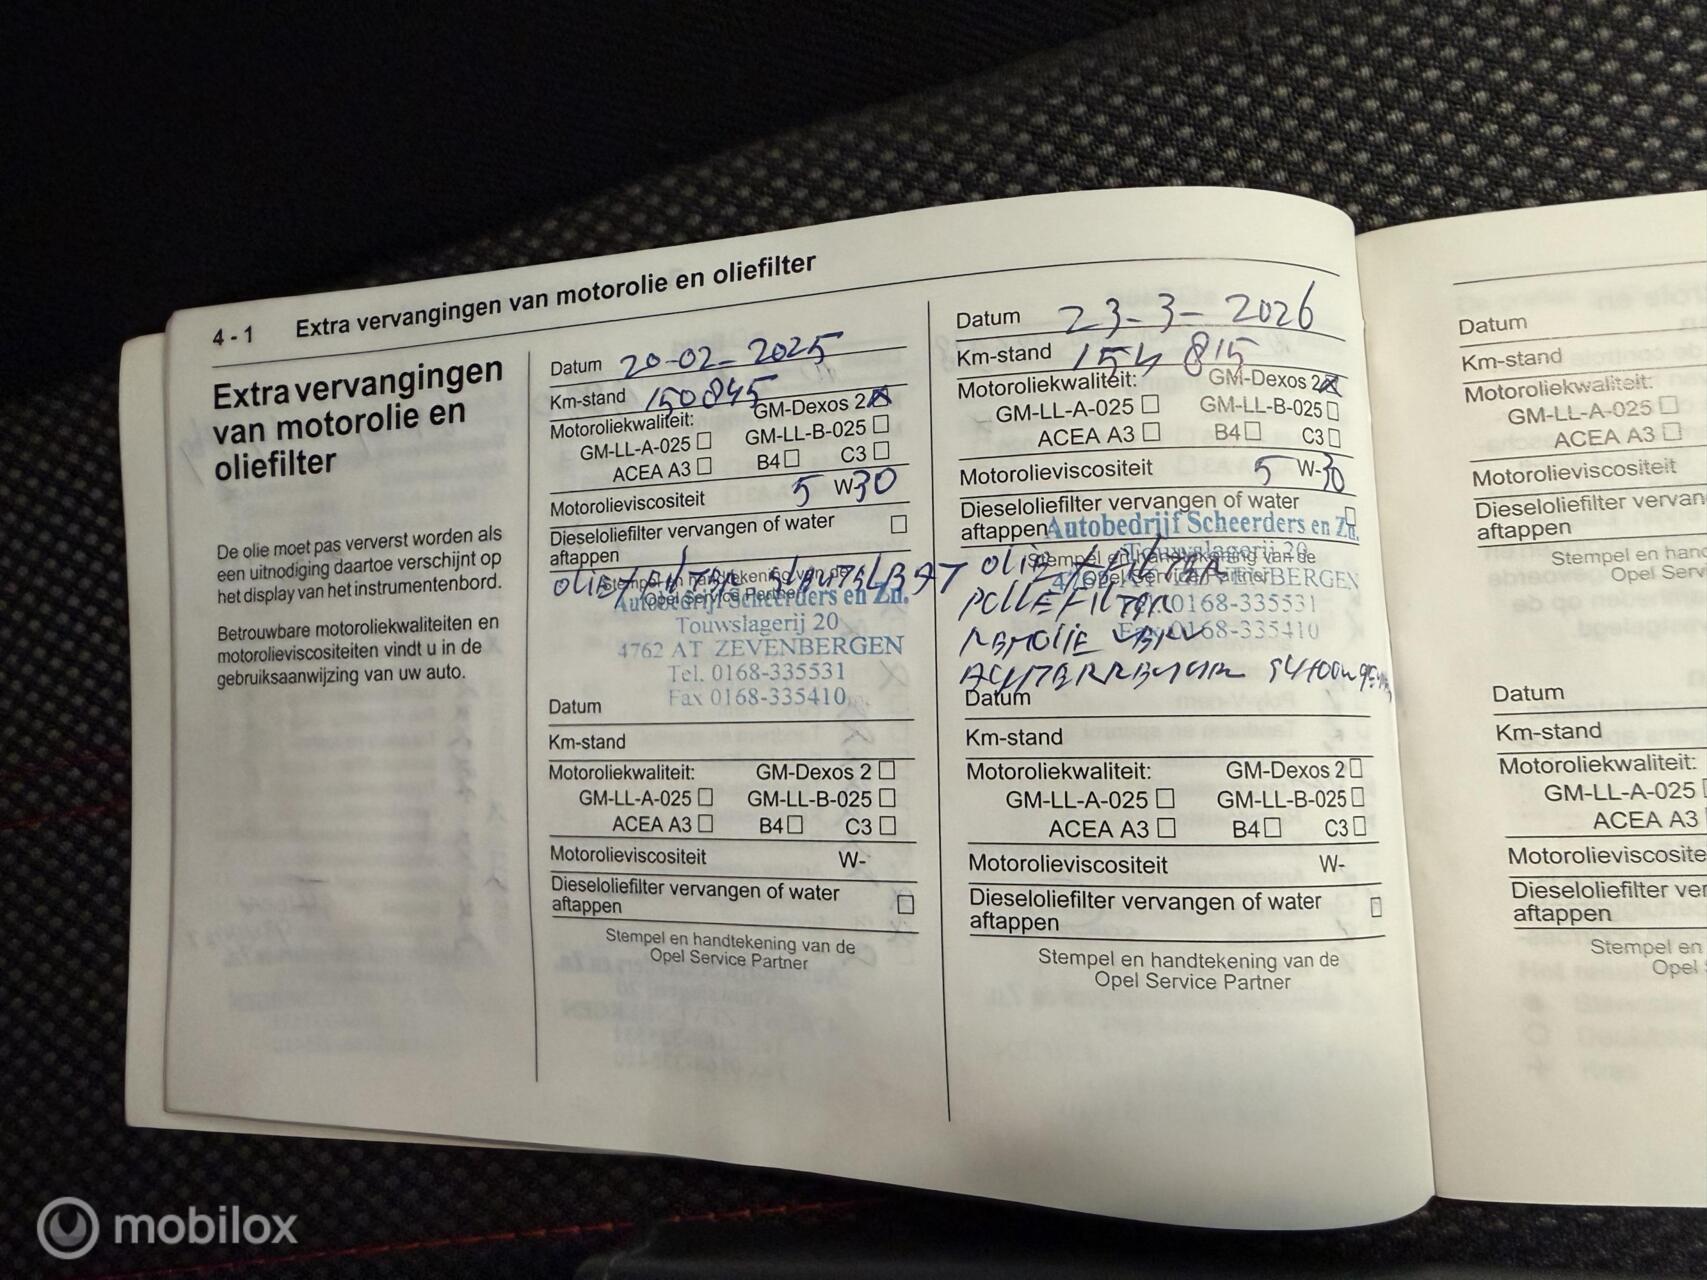 4 - 1 Extra vervangingen van motorolie en oliefilter
Extra vervangingen
van motorolie en
oliefilter
De olie moet pas ververst worden als
een uitnodiging daartoe verschijnt op
het display van het instrumentenbord.
Betrouwbare motoroliekwaliteiten en
motorolieviscositeiten vindt u in de
gebruiksaanwijzing van uw auto.
Datum 20-02-2025
Km-stand 150845
Motoroliekwaliteit: GM-Dexos 2
GM-LL-A-025 GM-LL-B-025
ACEA A3 B4 C3
Motorolieviscositeit 5 W-30
Dieseloliefilter vervangen of water
aftappen
Stempel en handtekening van de
Opel Service Partner
Autobedrijf Scheerders en Zn.
Touwslagerij 20
4762 AT ZEVENBERGEN
Tel. 0168-335531
Fax 0168-335410
Datum
Km-stand
Motoroliekwaliteit: GM-Dexos 2
GM-LL-A-025 GM-LL-B-025
ACEA A3 B4 C3
Motorolieviscositeit W-
Dieseloliefilter vervangen of water
aftappen
Stempel en handtekening van de
Opel Service Partner
Datum 23-3-2026
Km-stand 154 815
Motoroliekwaliteit: GM-Dexos 2
GM-LL-A-025 GM-LL-B-025
ACEA A3 B4 C3
Motorolieviscositeit 5 W-30
Dieseloliefilter vervangen of water
aftappen
Autobedrijf Scheerders en Zn.
Stempel en handtekening van de
Touwslagerij 20
OLIE + FILTER
Opel Service Partner
4762 AT ZEVENBERGEN
POLLEFILTER
Tel. 0168-335531
REMOLIE
Fax 0168-335410
Datum
Km-stand
Motoroliekwaliteit: GM-Dexos 2
GM-LL-A-025 GM-LL-B-025
ACEA A3 B4 C3
Motorolieviscositeit W-
Dieseloliefilter vervangen of water
aftappen
Stempel en handtekening van de
Opel Service Partner
Datum
Km-stand
Motoroliekwaliteit:
GM-LL-A-025
ACEA A3
Motorolieviscositeit
Dieseloliefilter vervan
aftappen
Stempel en hand
Opel Servic
Datum
Km-stand
Motoroliekwaliteit:
GM-LL-A-025
ACEA A3
Motorolieviscosite
Dieseloliefilter ver
aftappen
Stempel en
Opel
mobilox